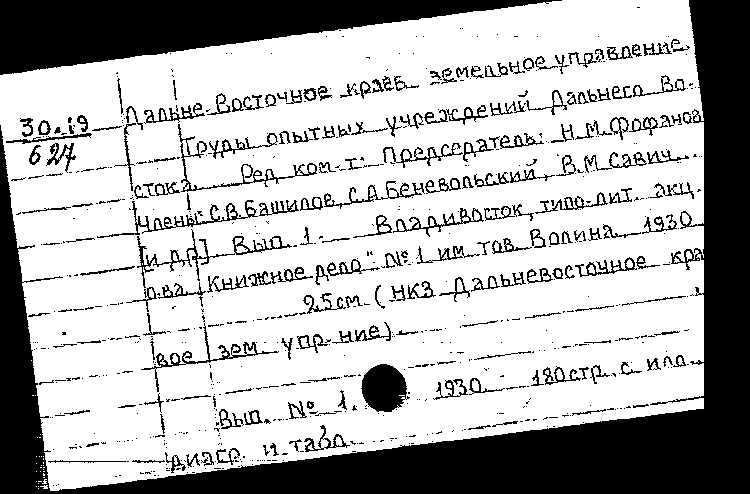 30.19
627
Дальне-Восточное краев. земельное управление.
Труды опытных учреждений Дальнего Во-
стока. Ред. ком-т: Председатель: Н.М.Фофанов
Члены: С.В.Башилов, С.А.Беневольский, В.М.Савич...
[и др.] Вып. 1. Владивосток, типо-лит. акц.
о-ва "Книжное дело" №1 им. тов. Волина, 1930
25см (НКЗ Дальневосточное крае
вое зем. упр-ние).
Вып. № 1. 1930. 180стр. с илл.,
диагр. и табл.